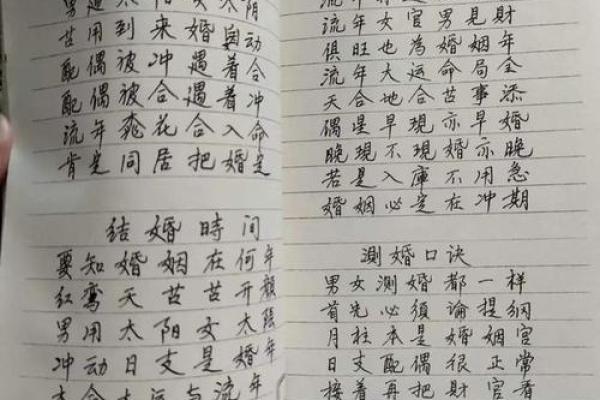 男遇太阳女太阴
喜用到来婚自动
配偶被冲遇着合
配偶被合遇着冲
流年桃花合入命
肯定同居把婚定
结婚時间
要知婚姻在何年
红鸾天喜喜开颜
男用太阳女太陰
冲动日支是婚年
六合大运与流年
流年
流年女官男見財
俱旺也為婚姻年
流年大运命局全
天合地合喜事添
偶星早現亦早婚
晚現不現婚亦晚
若是入庫不用急
婚姻必定在冲期
測婚口诀
男女測婚都一样
首先必須論提纲
月柱本是婚姻宫
日支配偶很正常
接着再把財官看